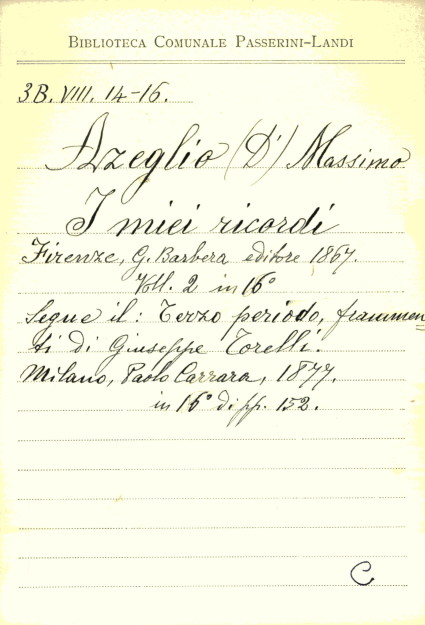 BIBLIOTECA COMUNALE PASSERINI-LANDI
3B. VIII. 14-16.
Azeglio (D') Massimo
I miei ricordi
Firenze, G. Barbera editore 1867.
Voll. 2 in 16°
Segue il: Terzo periodo, frammen=
ti di Giuseppe Torelli.
Milano, Paolo Carrara, 1877.
in 16° di pp. 152.
C